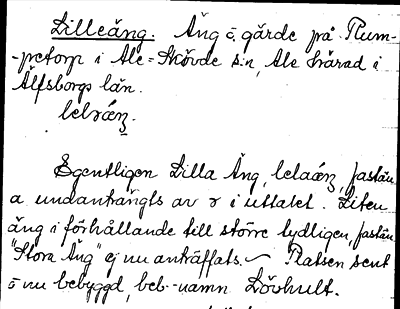 Lilleäng. Äng o. gärde på Plum-
-pretorp i Ale-Skövde s:n, Ale härad i
Älfsborgs län.
lelräŋ.
Egentligen Lilla Äng, lelaäŋ, fastän
a undanträngts av r i uttalet. Liten
äng i förhållande till större tydligen, fastän
"Stora Äng" ej nu anträffats. — Platsen sent
o nu bebyggd, beb.-namn Lövhult.